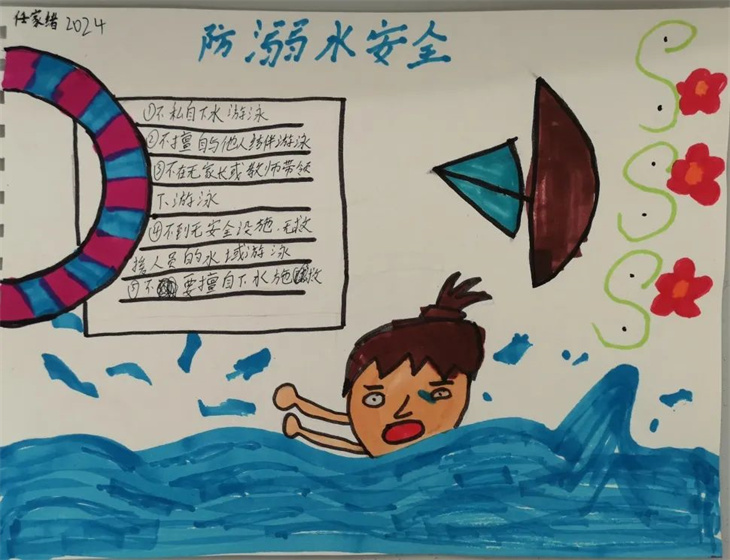 任家绪 2024
防溺水安全
①不私自下水游泳
②不擅自与他人结伴游泳
③不在无家长或教师带领
下游泳
④不到无安全设施、无救
援人员的水域游泳
⑤不要擅自下水施救